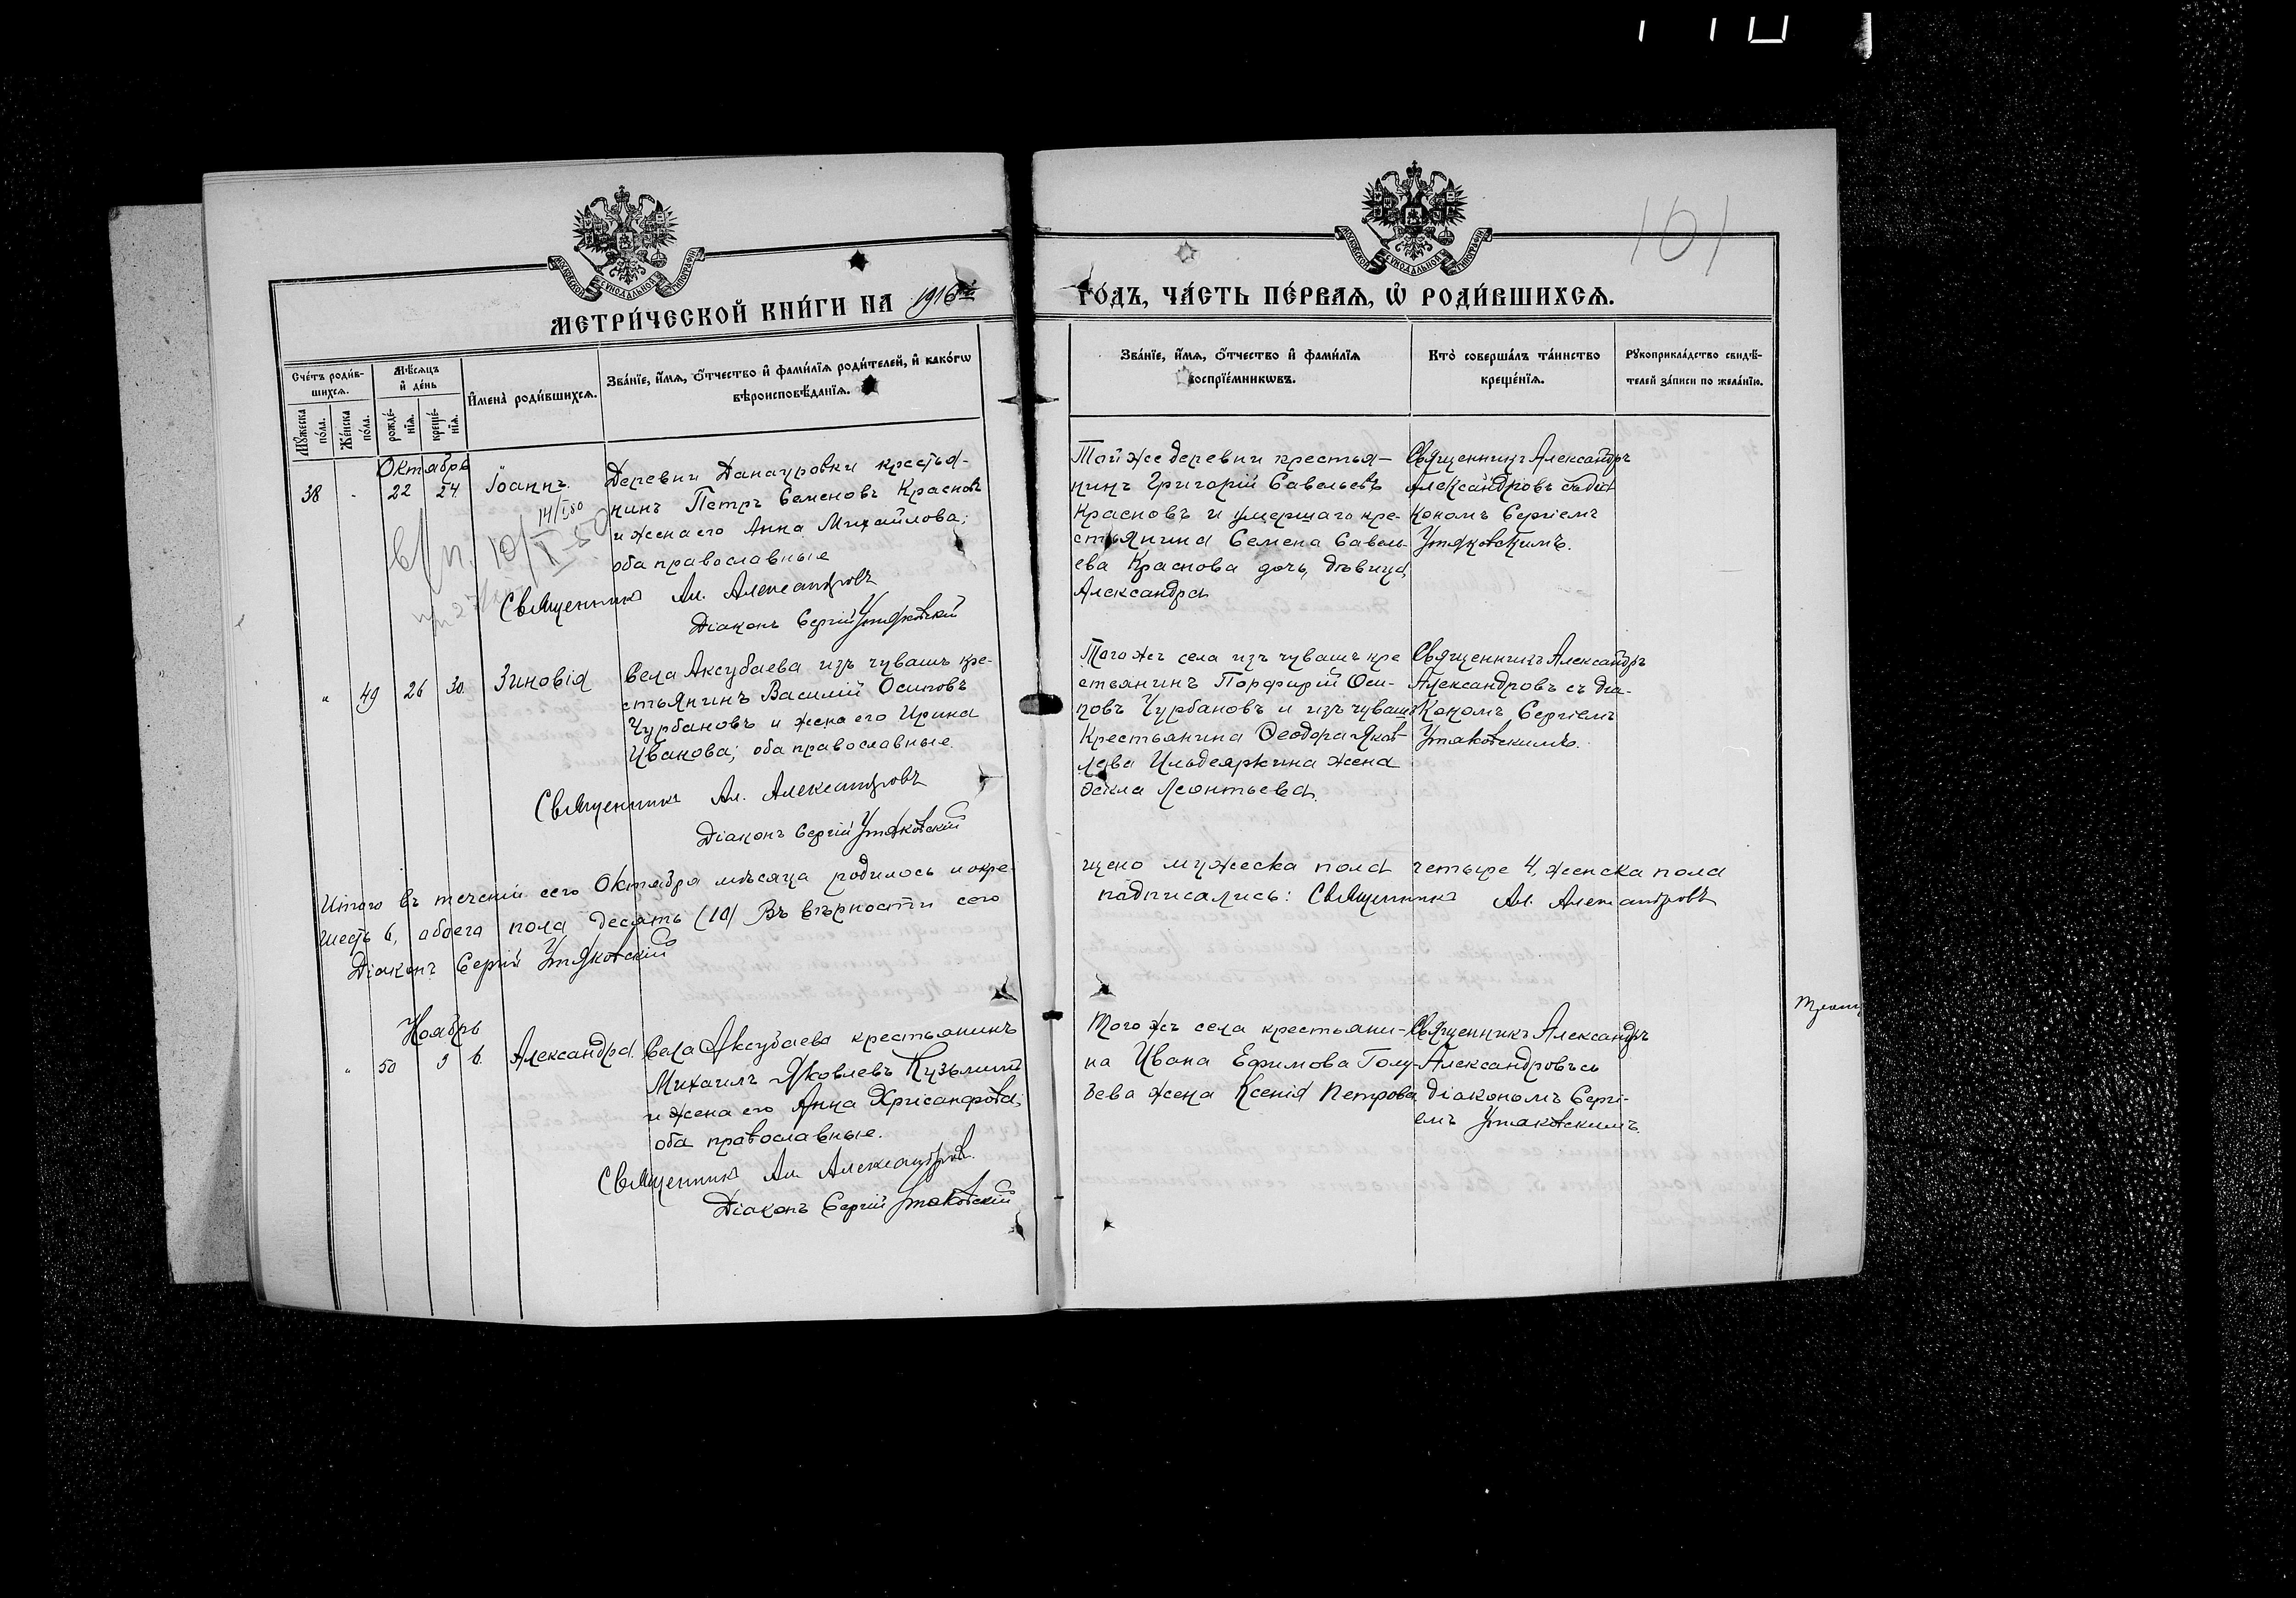 101
МЕТРИ́ЧЕСКОЙ КНИ́ГИ НА 1916й
ГО́ДЪ, ЧА́СТЬ ПЕ́РВАѦ, Ѡ҆ РОДИ́ВШИХСѦ.
Сче́тъ роди́в-
шихсѧ.
Мꙋ́жеска
по́ла.
Же́нска
по́ла.
Мѣ́сѧцъ
и҆ де́нь
рожде́-
нїѧ.
креще́-
нїѧ.
И҆мена̀ роди́вшихсѧ.
Зва́нїе, и҆́мѧ, о҆́тчество и҆ фами́лїѧ роди́телей, и҆ како́гѡ
вѣроисповѣ́данїѧ.
Зва́нїе, и҆́мѧ, о҆́тчество и҆ фами́лїѧ
воспрїе́мникѡвъ.
Кто̀ соверша́лъ та́инство
креще́нїѧ.
Рꙋкоприкла́дство свидѣ́-
телей за́писи по жела́нїю.
Октябрь
38 - 22 24 Іоаннъ.
14/I 50
в/п. 10/X-50
Деревни Данауровки крестья-
нинъ Петръ Семеновъ Красновъ
и жена его Анна Михайлова;
оба православные
Священникъ Ал. Александровъ
Діаконъ Сергій Утяковскій
Той же деревни крестья-
нинъ Григорій Савельевъ
Красновъ и умершаго кре-
стьянина Семена Савель-
ева Краснова дочь, дѣвица,
Александра
Священникъ Александръ
Александровъ съ діа
кономъ Сергіемъ
Утяковскимъ.
" 49 26 30 Зиновія
Села Аксубаева изъ чувашъ кре-
стьянинъ Василій Осиповъ
Чурбановъ и жена его Ирина
Иванова; оба православные.
Священникъ Ал. Александровъ
Діаконъ Сергій Утяковскій
Того же села изъ чувашъ кре
стьянинъ Порфирій Оси-
повъ Чурбановъ и изъ чувашъ
крестьянина Ѳеодора Яков
лева Ильдеяркина жена
Ѳекла Леонтьева.
Священникъ Александръ
Александровъ съ діа-
кономъ Сергіемъ
Утяковскимъ.
Итого въ теченіи сего Октября мѣсяца родилось и кре-
щено мужеска пола четыре 4, женска пола
шесть 6, обоего пола десять (10) Въ вѣрности сего
подписались: Священникъ Ал. Александровъ
Діаконъ Сергій Утяковскій
Ноябрь
" 50 5 6. Александра.
Села Аксубаева крестьянинъ
Михаилъ Яковлевъ Кузьминъ
и жена его Анна Хрисанфова;
оба православные.
Священникъ Ал. Александровъ.
Діаконъ Сергій Утяковскій
Того же села крестьяни-
на Ивана Ефимова Голу-
зева жена Ксенія Петрова
Священникъ Александръ
Александровъ съ
діакономъ Сергі-
емъ Утяковскимъ.